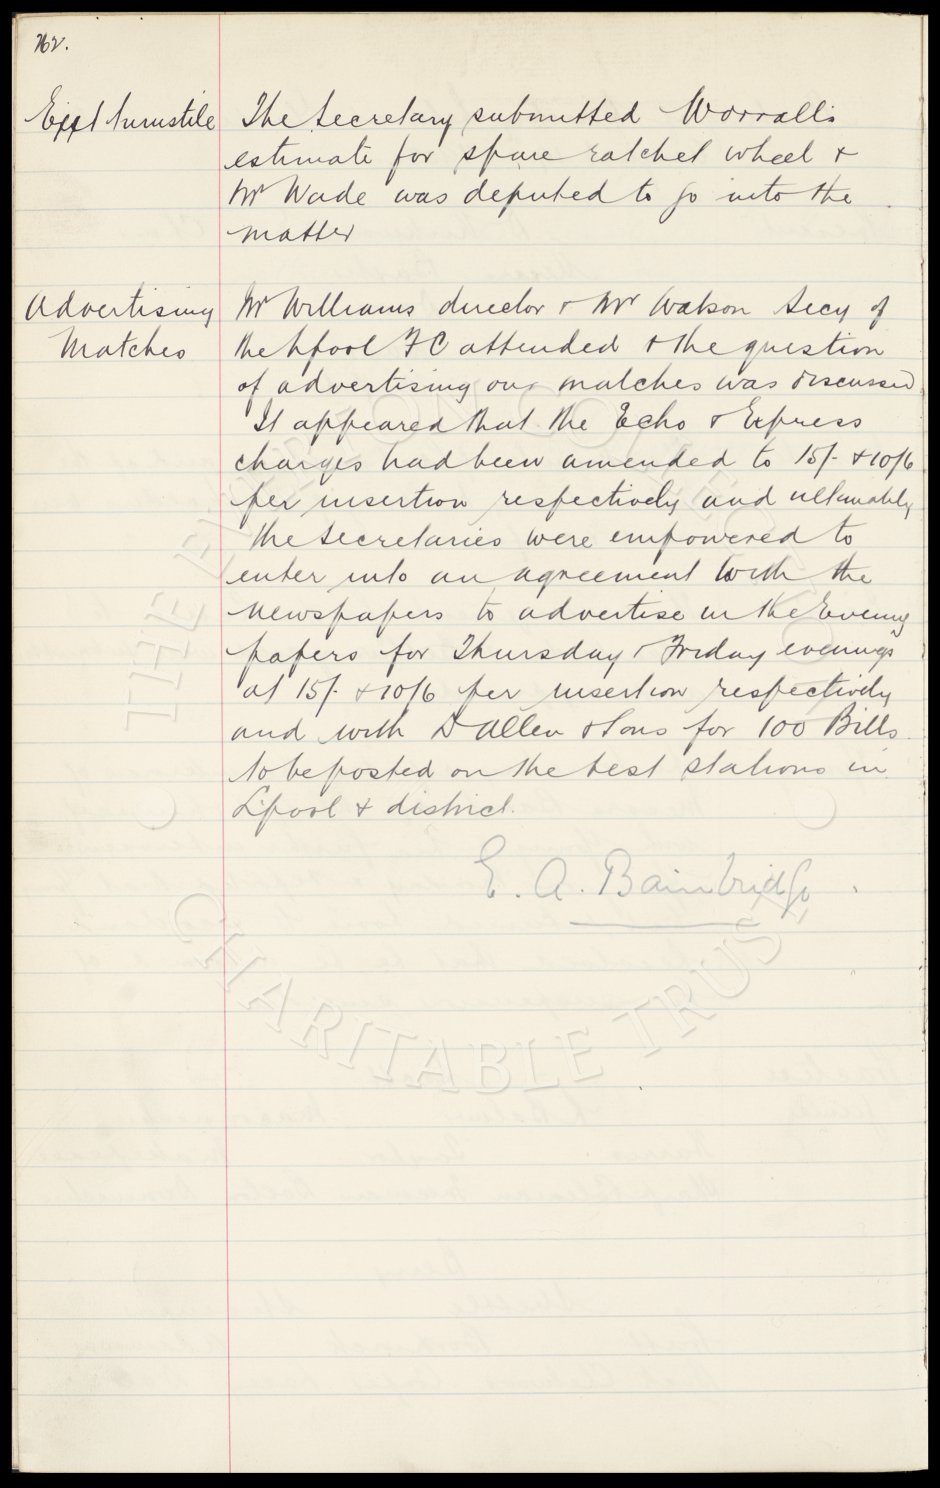 762.
Exit turnstile
The Secretary submitted Worrall's
estimate for spare ratchet wheel &
Mr Wade was deputed to go into the
matter
Advertising
Matches
Mr Williams director & Mr Watson Secy of
the Lpool FC attended & the question
of advertising our matches was discussed
It appeared that the Echo & Express
charges had been amended to 15/- & 10/6
per insertion respectively and ultimately
the Secretaries were empowered to
enter into an agreement with the
newspapers to advertise in the Evening
papers for Thursday & Friday evenings
at 15/- & 10/6 per insertion respectively
and with D Allen & Sons for 100 Bills
to be posted on the best stations in
L'pool & district.
E. A. Bainbridge
THE EVERTON COLLECTION
CHARITABLE TRUST